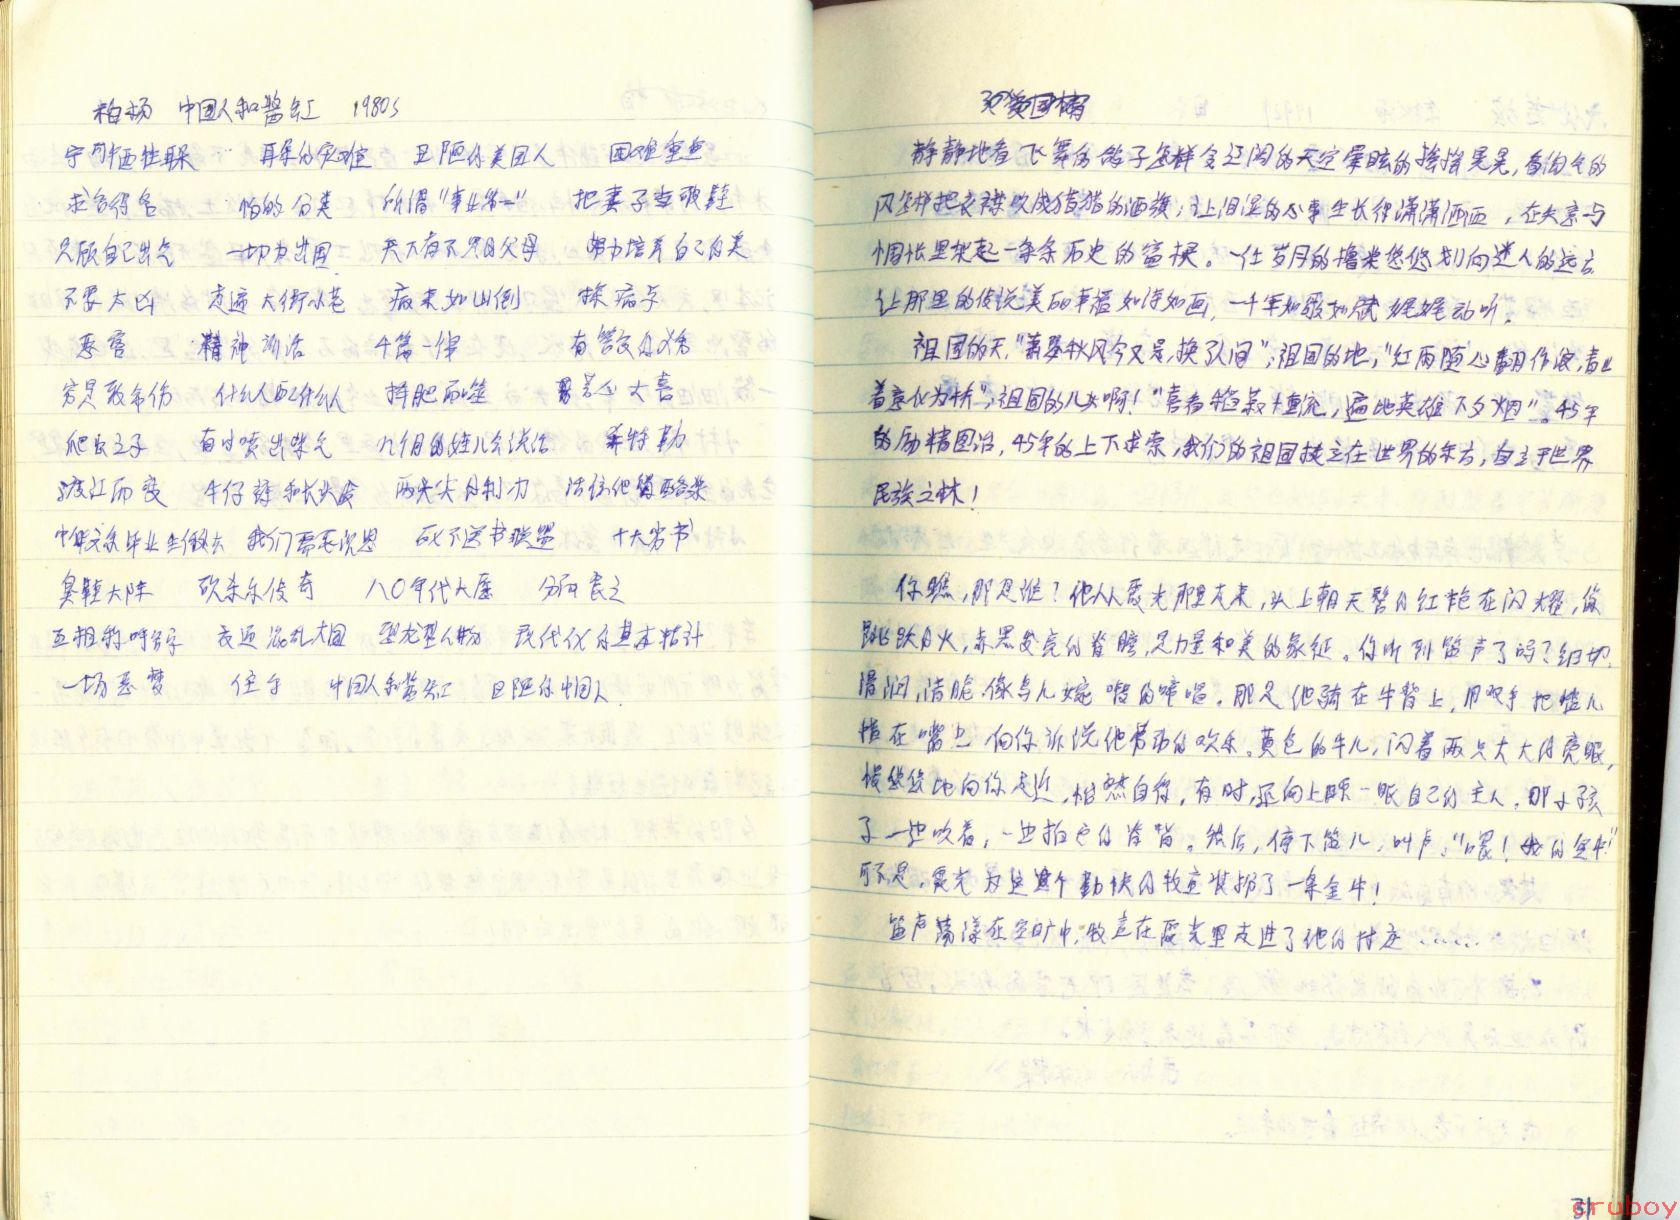 柏杨 中国人和酱缸 1980s
宁可牺牲眼 耳朵的灾难 丑陋的美国人 困难重重
求名得名 怕的分类 所谓"事业第一" 把妻子当砚鞋
只顾自己出气 一切为出国 天下有不是的父母 努力培养自己的美
不要太凶 走遍大街小巷 病来如山倒 探病与
恶客 精神訓话 千篇一律 有签交的义务
穷是致命伤 什么人配什么人 择肥而噬 大喜
爬虫之子 有时喷出来气 九个月的娃儿会说话 希特勒
渡江而变 牛仔裤和长头发 两头尖的利刀
中文系毕业生做啥 我们需要沉思 砍不尽书联盟 十大劣书
臭鞋大阵 砍杀乐传奇 八〇年代大愿 分而食之
互相称呼名字 衣近混乱大国 恐龙型人物 现代化的基本指针
一场恶梦 住字 中国人和酱缸 丑陋的中国人
静静地看飞舞的鸽子怎样令辽阔的天空晕眩的摇摇晃晃,看白色的
风怎样把衣襟吹成猎猎的酒旗;让泪湿的心事生长得潇潇洒洒,在失意与
惆怅里架起一条条历史的窗棂。一任岁月的橹桨悠悠划向迷人的远古
让那里的传说美丽幸福如诗如画,一千年如歌如赋娓娓动听。
祖国的天,"萧瑟秋风今又是,换了人间";祖国的地,"红雨随心翻作浪,青山
着意化为桥";祖国的儿女啊!"喜看稻菽千重浪,遍地英雄下夕烟"。45年
的励精图治,45年的上下求索,我们的祖国挺立在世界的东方,自立于世界
民族之林!
你瞧,那是谁?他从霞光那里走来,头上朝天髻的红艳在闪耀,像
跳跃的火,赤黑发亮的脊膀,是力量和美的象征。你听到笛声了吗?细切
滑润,清脆,像鸟儿婉啭的啼唱。那是他骑在牛背上,用双手把笛儿
横在嘴上向你诉说他劳动的欢乐。黄色的牛儿,闪着两只大大的亮眼,
慢悠悠地向你走近,怡然自得,有时,还向上瞟一眼自己的主人。那小孩
子一边吹着,一边拍它的脊背。然后,停下笛儿,叫声,"嘿!我的金牛!"
可不是,霞光为这个勤快的牧童装扮了一条金牛!
笛声荡漾在空旷中,牧童在霞光里走进了他的村庄……
31
cruboy